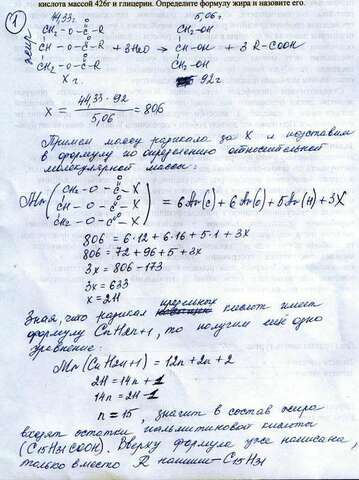 кислота массой 426г и глицерин. Определите формулу жира и назовите его.
1
44,33г. 5,06г.
жир
O
CH₂-O-C-R CH₂-OH
O
CH-O-C-R + 3H₂O → CH-OH + 3R-COOH
O
CH₂-O-C-R CH₂-OH
X г. 92г
X = 44,33·92 / 5,06 = 806
Примем массу радикала за X и подставим
в формулу по определению относительной
молекулярной массы:
O
CH₂-O-C-X
O
Mr(CH-O-C-X) = 6Ar(C) + 6Ar(O) + 5Ar(H) + 3X
O
CH₂-O-C-X
806 = 6·12 + 6·16 + 5·1 + 3X
806 = 72 + 96 + 5 + 3X
3X = 806-173
3X = 633
X = 211
Зная, что радикал предельных кислот имеет
формулу CnH2n+1, то получим ещё одно
уравнение:
Mr(CnH2n+1) = 12n + 2n + 1
211 = 14n + 1
14n = 211-1
n = 15, значит в состав жира
входят остатки пальмитиновой кислоты
(C₁₅H₃₁COOH). Вверху формула уже написана,
только вместо R пишем – C₁₅H₃₁